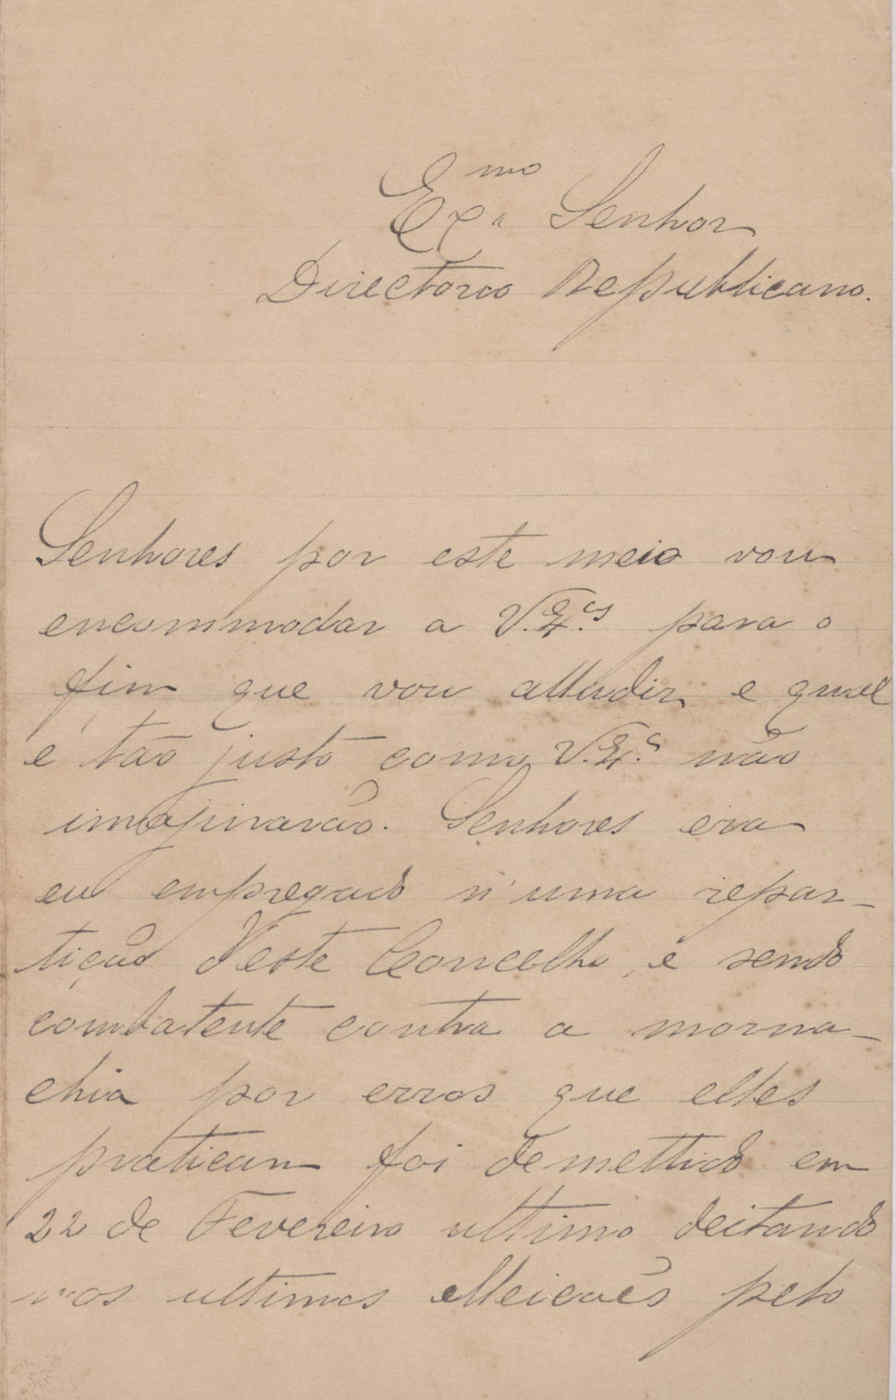 Ex.mo Senhor
Directorio Republicano.
Senhores por este meio vou
encommodar a V. Ex.cs para o
fim que vou alludir, e qual
e tão justo como V. Ex.s não
imajinarão. Senhores era
eu empregado n'uma repar-
tição d'este Concelho, e sendo
combatente contra a morna-
chia por erros que elles
praticam foi demettido em
22 de Fevereiro ultimo deitando
nos ultimos elleicoês pelo